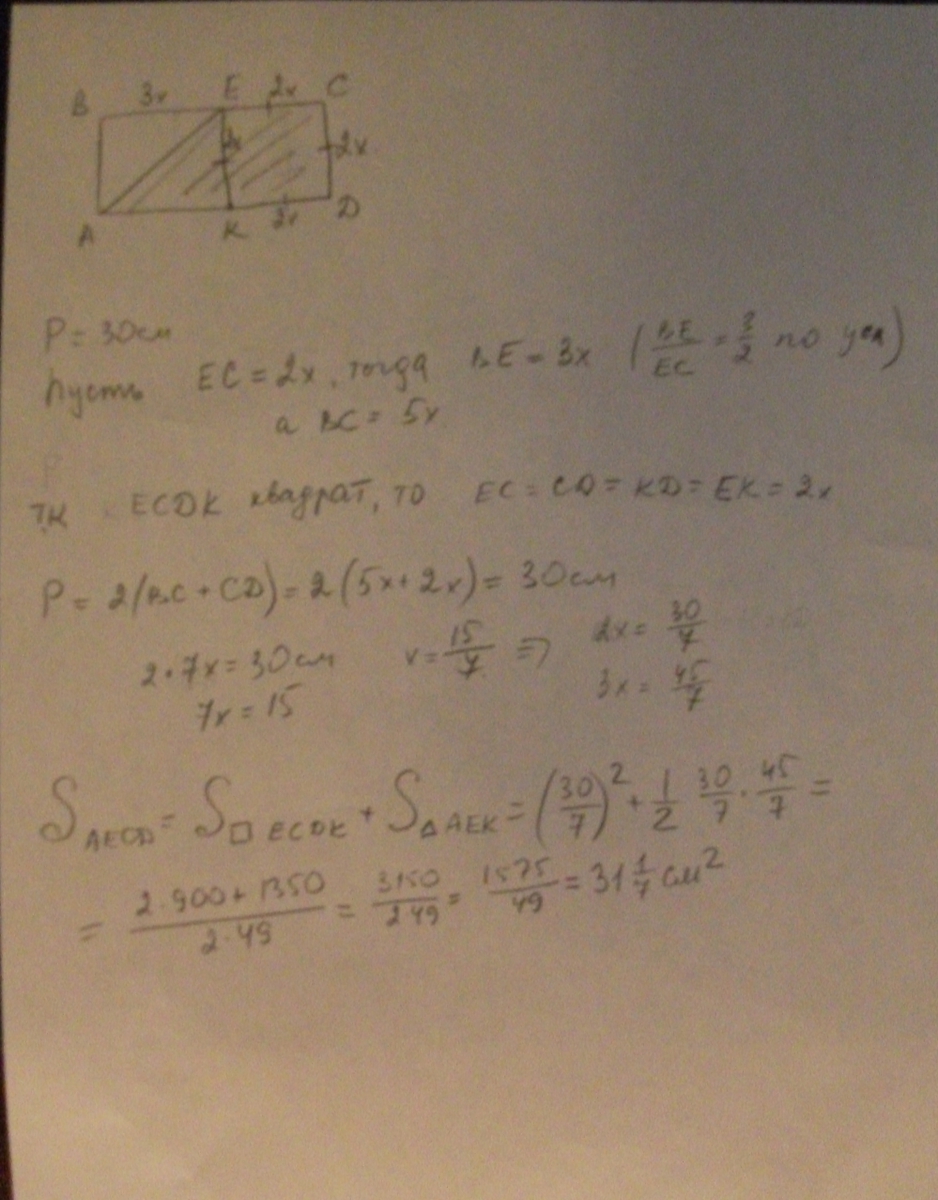 B 3x E 2x C
2x 2x
A K 2x D
P = 30см
Пусть EC = 2x, тогда BE = 3x (BE/EC = 3/2 по усл)
а BC = 5x
Т.К ECDK квадрат, то EC = CD = KD = EK = 2x
P = 2(BC + CD) = 2(5x + 2x) = 30см
2·7x = 30см x = 15/7 => 2x = 30/7
7x = 15 3x = 45/7
S AECD = S □ ECDK + S △ AEK = (30/7)² + 1/2 30/7 · 45/7 =
= 2·900 + 1350 / 2·49 = 3150 / 2·49 = 1575/49 = 31 1/7 см²